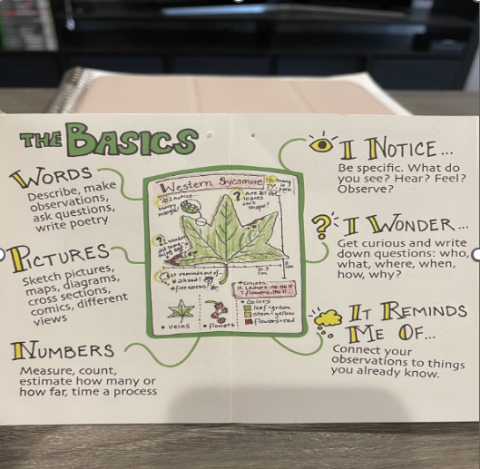 THE BASICS
WORDS
Describe, make
observations,
ask questions,
write poetry
PICTURES
Sketch pictures,
maps, diagrams,
cross sections,
comics, different
views
NUMBERS
Measure, count,
estimate how many or
how far, time a process
Western Sycamore
I notice
? Are all
leaves
this
shape?
? I wonder
It reminds me of...
• veins
• flowers
• Counts
• Colors
leaf=green
stem=yellow
flowers=red
I NOTICE...
Be specific. What do
you see? Hear? Feel?
Observe?
? I WONDER...
Get curious and write
down questions: who,
what, where, when,
how, why?
IT REMINDS
ME OF...
Connect your
observations to things
you already know.